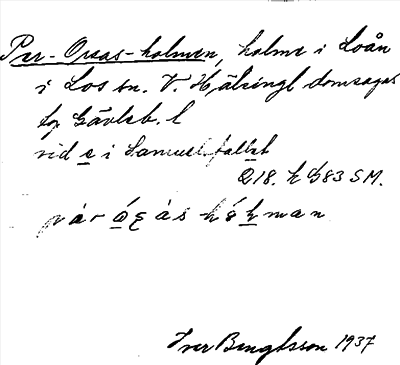 Per-Orsas-holmen, holme i Loån
i Los sn. V. Hälsingl domsagas
tg Gävleb. l
vid e i Samuelsfallet
Q18. h G83 SM.
Iver Bengtsson 1937